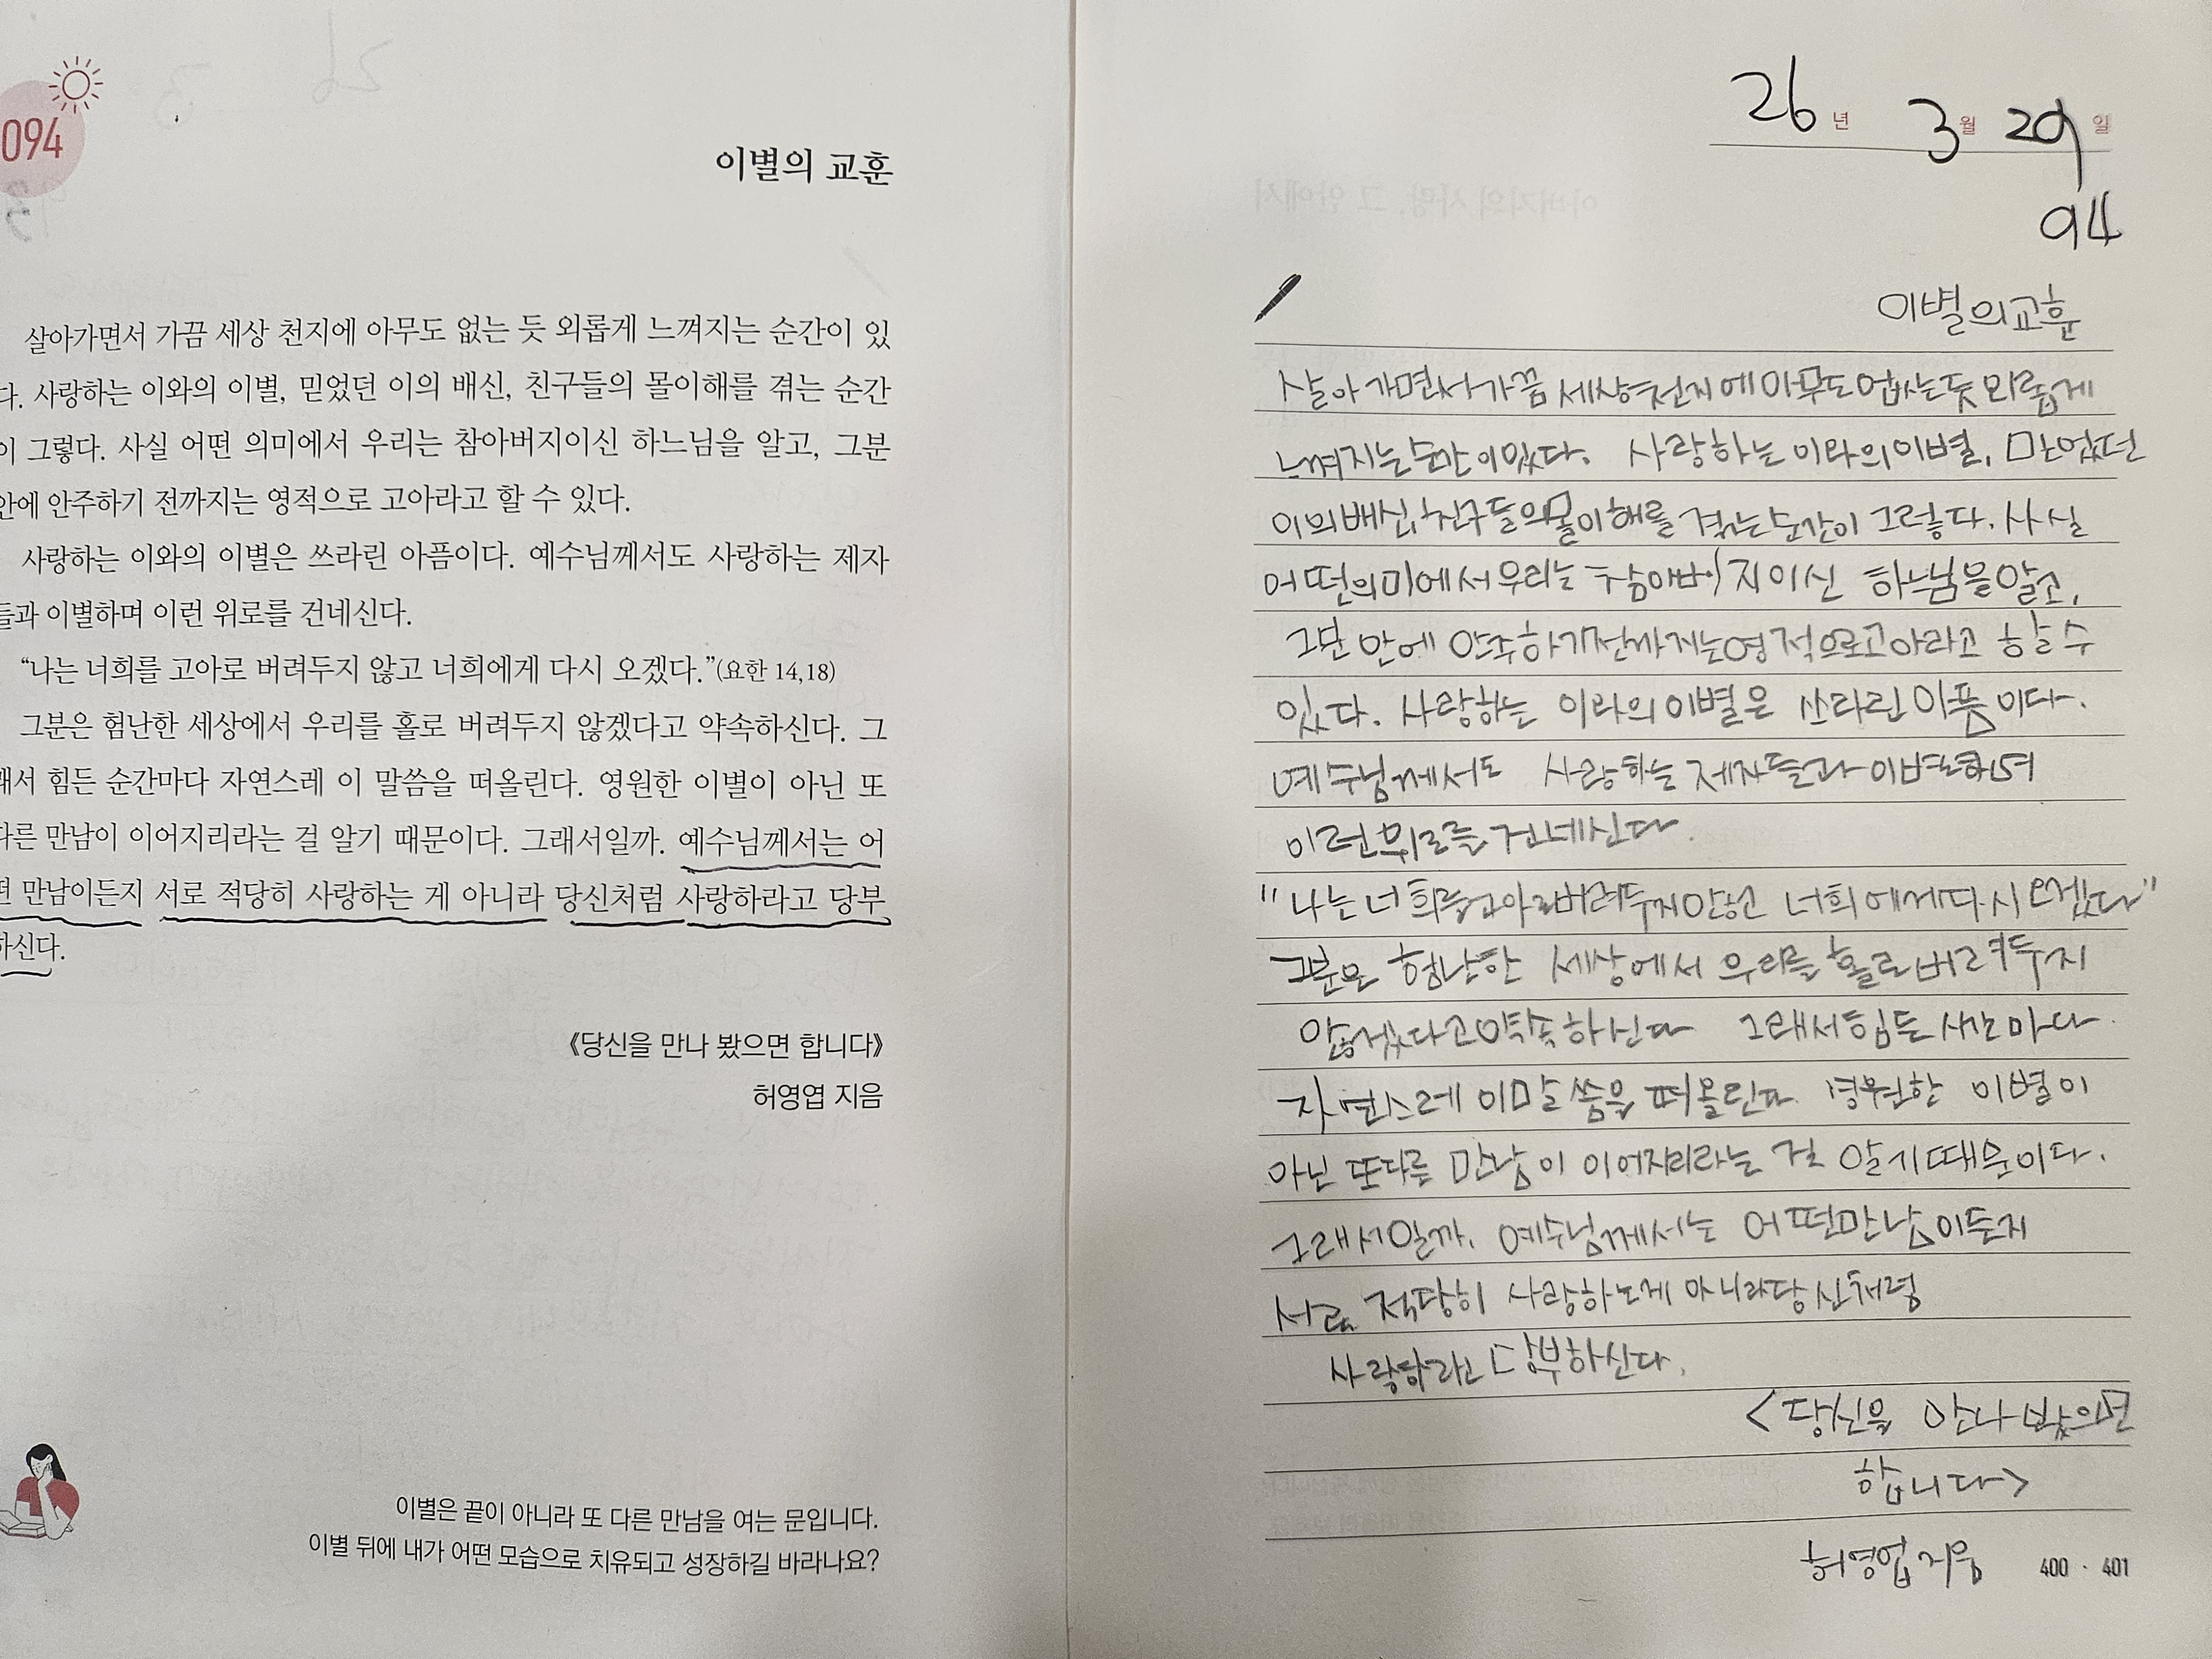 094
이별의 교훈
살아가면서 가끔 세상 천지에 아무도 없는 듯 외롭게 느껴지는 순간이 있
다. 사랑하는 이와의 이별, 믿었던 이의 배신, 친구들의 몰이해를 겪는 순간
이 그렇다. 사실 어떤 의미에서 우리는 참아버지이신 하느님을 알고, 그분
안에 안주하기 전까지는 영적으로 고아라고 할 수 있다.
사랑하는 이와의 이별은 쓰라린 아픔이다. 예수님께서도 사랑하는 제자
들과 이별하며 이런 위로를 건네신다.
“나는 너희를 고아로 버려두지 않고 너희에게 다시 오겠다.”(요한 14,18)
그분은 험난한 세상에서 우리를 홀로 버려두지 않겠다고 약속하신다. 그
래서 힘든 순간마다 자연스레 이 말씀을 떠올린다. 영원한 이별이 아닌 또
다른 만남이 이어지리라는 걸 알기 때문이다. 그래서일까. 예수님께서는 어
떤 만남이든지 서로 적당히 사랑하는 게 아니라 당신처럼 사랑하라고 당부
하신다.
《당신을 만나 봤으면 합니다》
허영엽 지음
이별은 끝이 아니라 또 다른 만남을 여는 문입니다.
이별 뒤에 내가 어떤 모습으로 치유되고 성장하길 바라나요?
26년 3월 29일
94
이별의교훈
살아가면서가끔 세상천지에아무도없는듯 외롭게
느껴지는순간이있다. 사랑하는 이와의이별, 믿었던
이의배신, 친구들의몰이해를 겪는순간이 그렇다. 사실
어떤의미에서우리는 참아버지이신 하느님을알고,
그분 안에 안주하기전까지는영적으로고아라고 할 수
있다. 사랑하는 이와의이별은 쓰라린 아픔이다.
예수님께서도 사랑하는 제자들과이별하며
이런위로를 건네신다.
"나는 너희를고아로버려두지않고 너희에게다시오겠다"
그분은 험난한 세상에서 우리를홀로버려두지
않겠다고약속하신다 그래서힘든 마다
자연스레 이말씀을 떠올린다. 영원한 이별이
아닌 또다른 만남이 이어지리라는 걸 알기때문이다.
그래서일까. 예수님께서는 어떤만남이든지
서로 적당히 사랑하는게 아니라당신처럼
당부하신다.
<당신을 봤으면
합니다>
허영엽지음
400 · 401